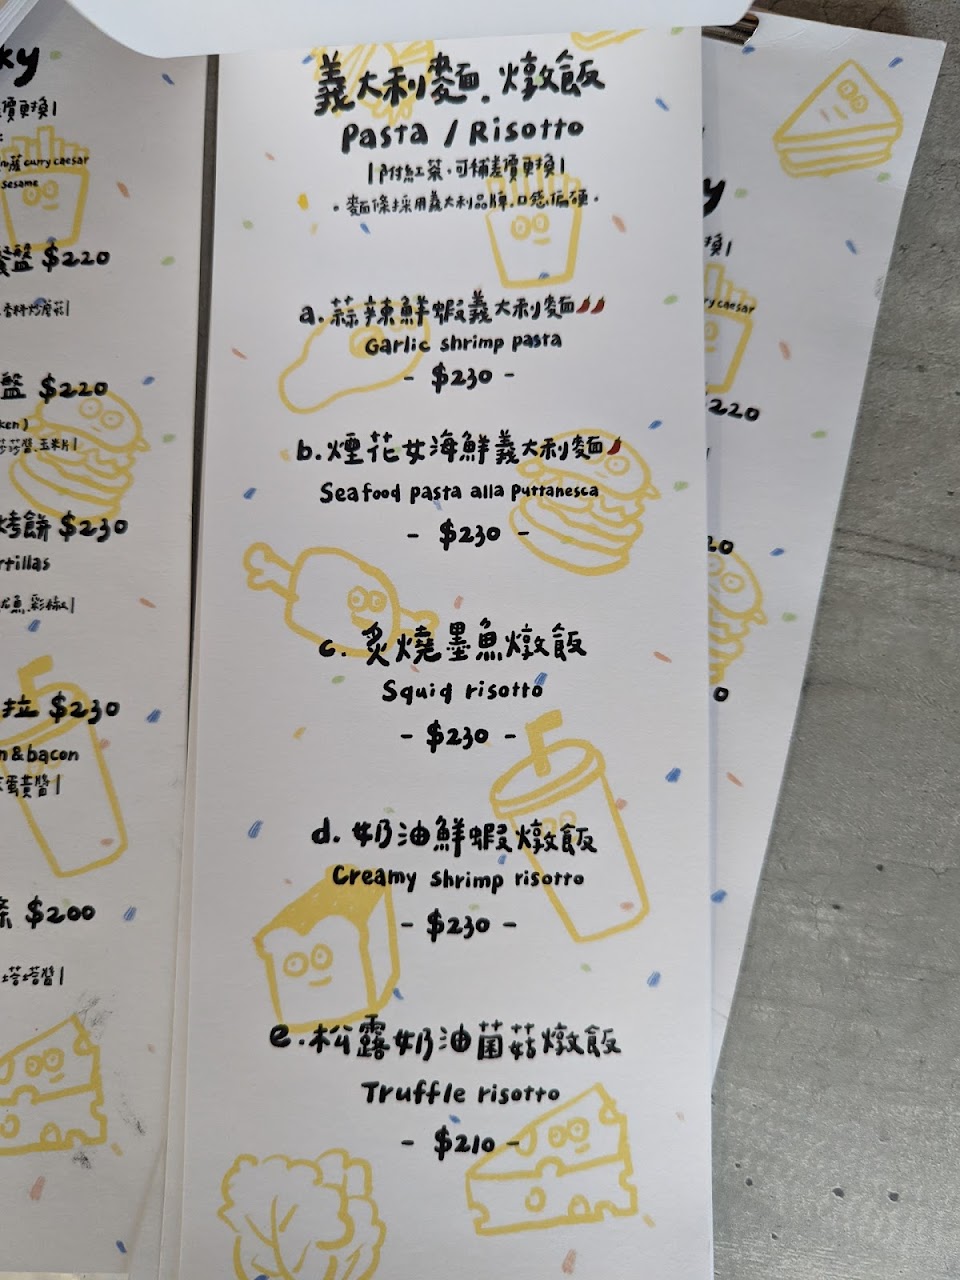 ky
價更換|
curry caesar
sesame
盤 $220
盤 $220
ken )
玉米片|
烤餅 $230
rtillas
魚.彩椒|
拉 $230
n & bacon
蛋黃醬|
條 $200
塔塔醬|
義大利麵.燉飯
Pasta / Risotto
|附紅茶.可補差價更換|
。麵條採用義大利品牌.口感偏硬。
a. 蒜辣鮮蝦義大利麵
Garlic shrimp pasta
- $230 -
b. 煙花女海鮮義大利麵
Seafood pasta alla Puttanesca
- $230 -
c. 炙燒墨魚燉飯
Squid risotto
- $230 -
d. 奶油鮮蝦燉飯
Creamy shrimp risotto
- $230 -
e. 松露奶油菌菇燉飯
Truffle risotto
- $210 -
y
換|
ry caesar
220
20
0